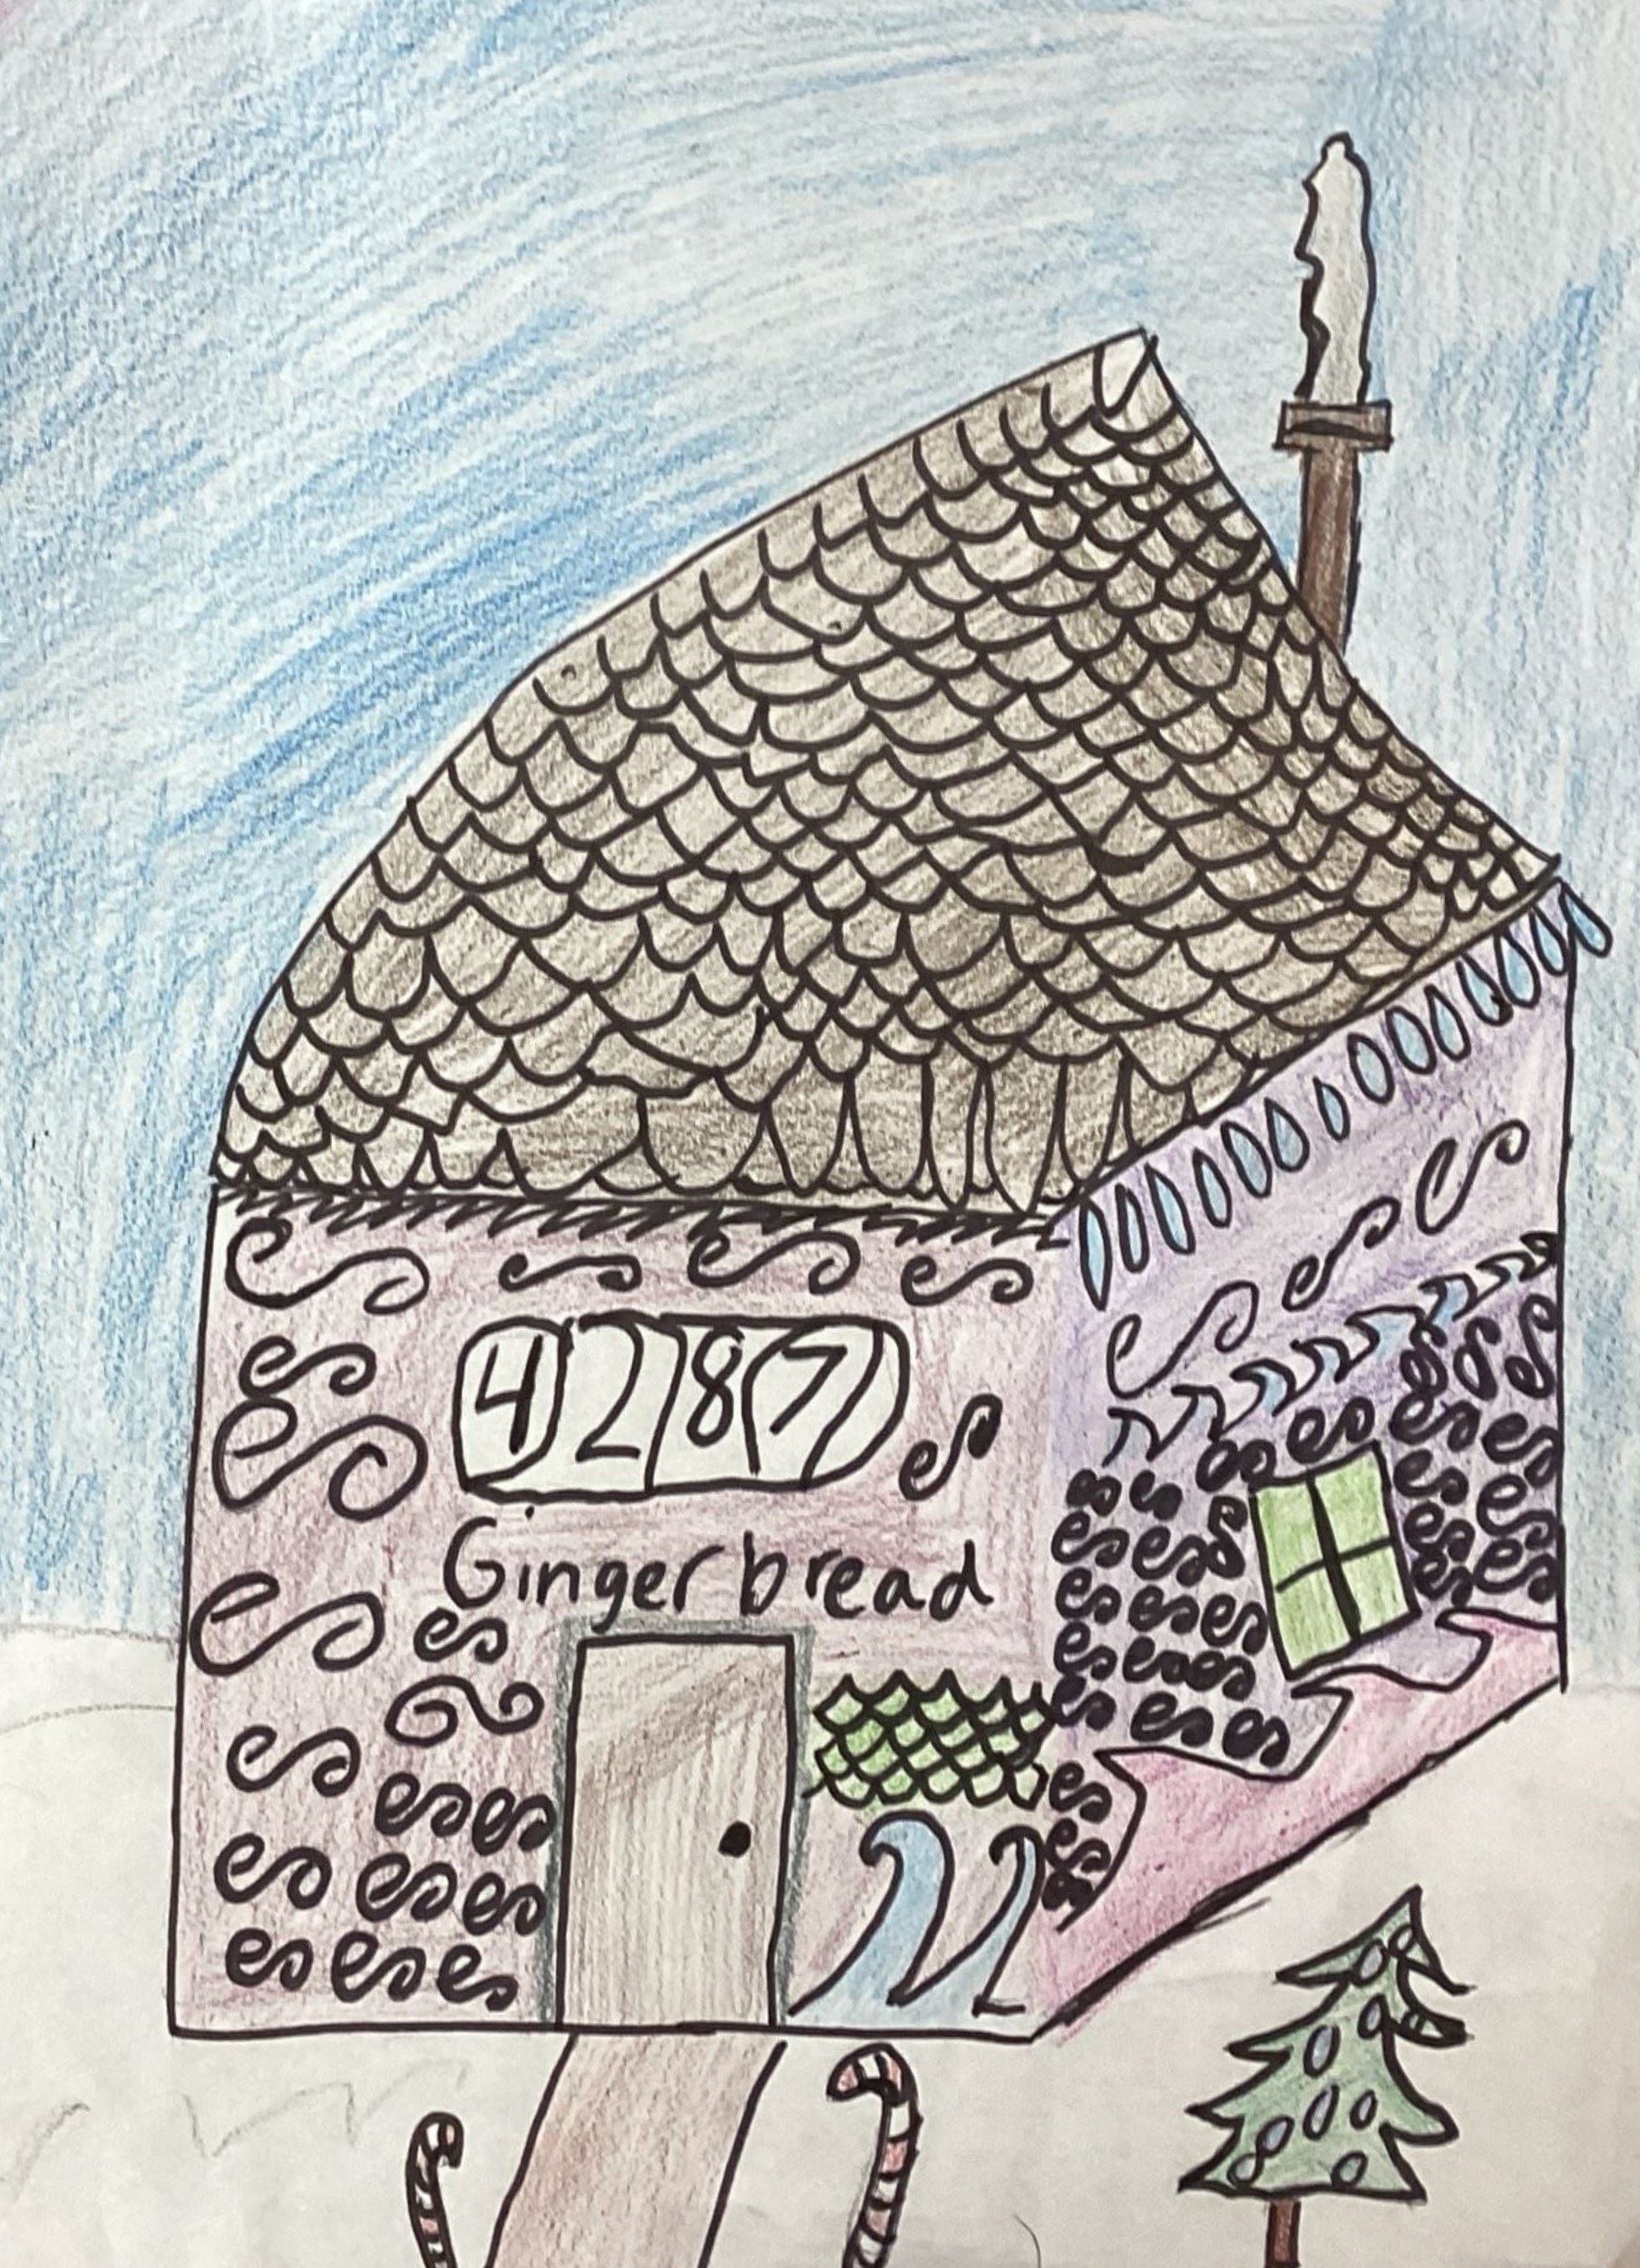 4287
Gingerbread